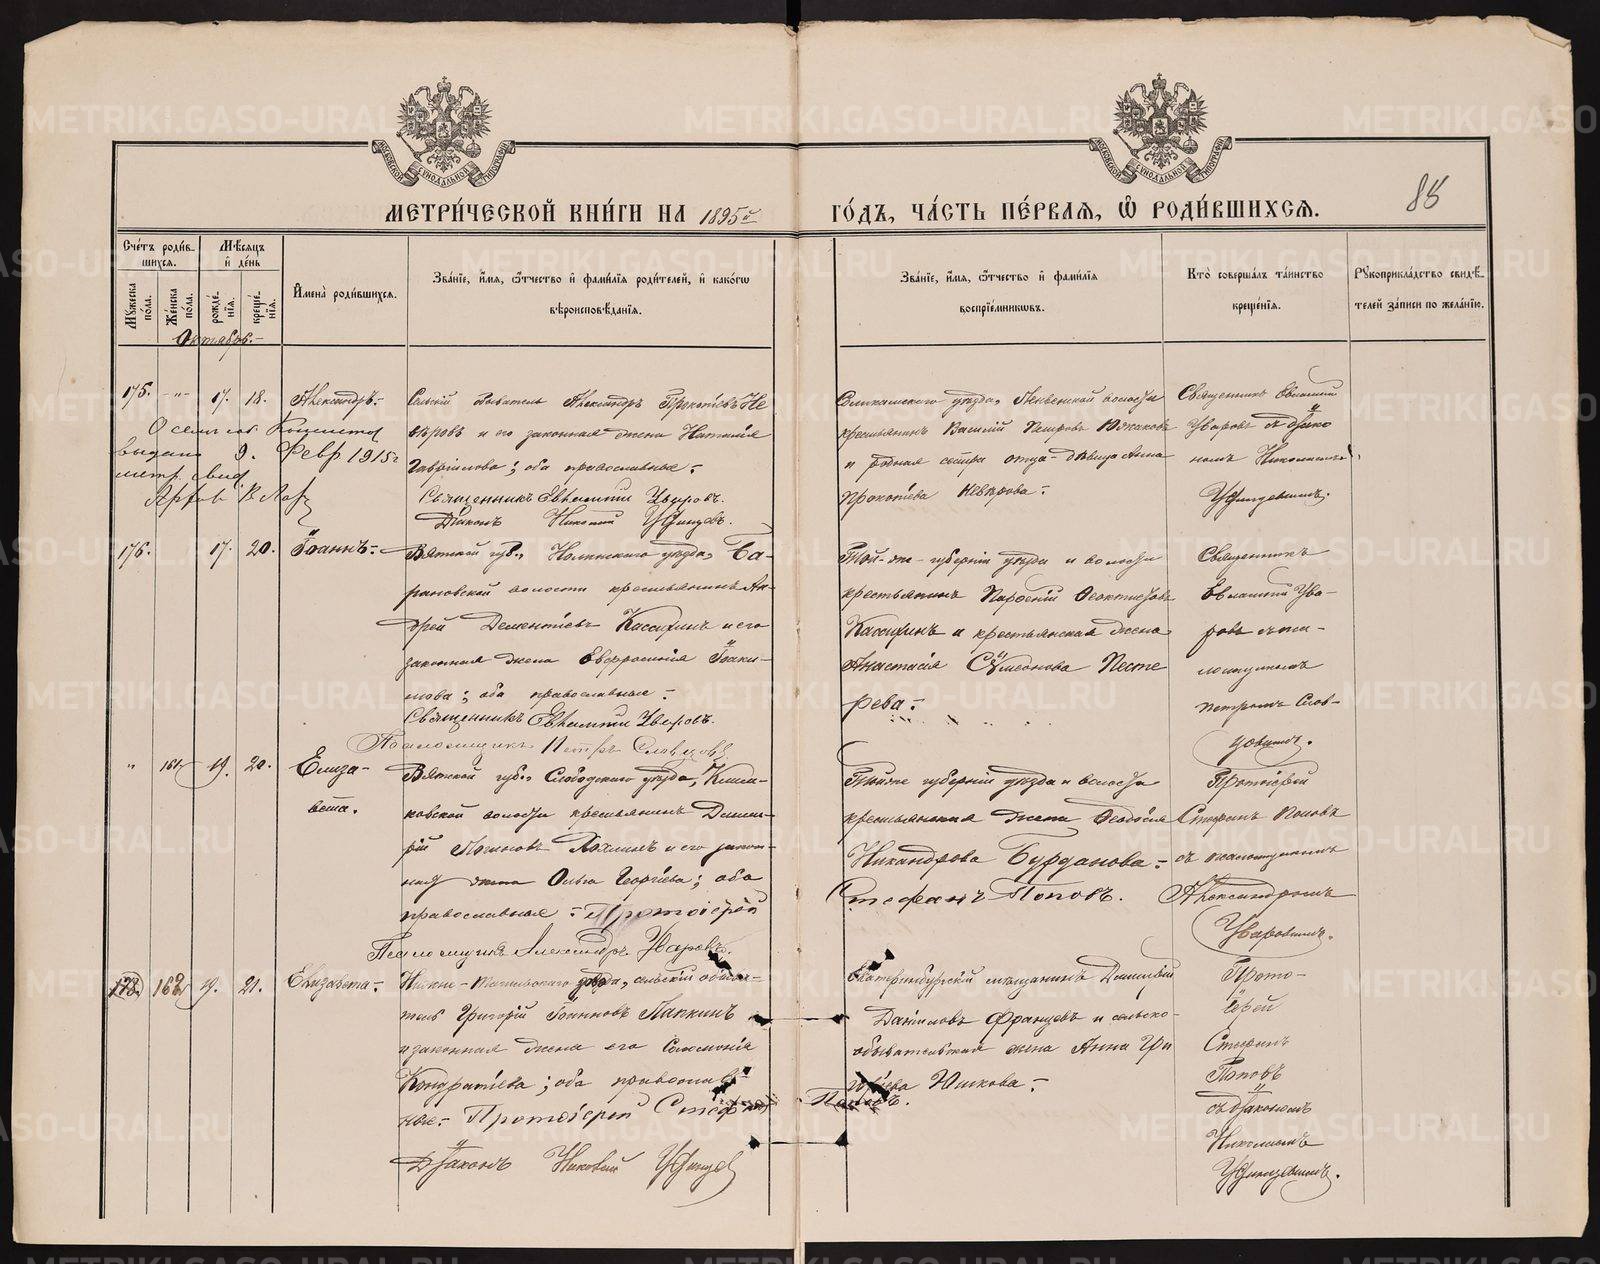 МОСКОВСКОЙ СУНОДАЛЬНОЙ ТИПОГРАФІИ
МОСКОВСКОЙ СУНОДАЛЬНОЙ ТИПОГРАФІИ
МЕТРИ́ЧЕСКОЙ КНИ́ГИ НА 1895й ГО́ДЪ, ЧА́СТЬ ПЕ́РВАЯ, Ѡ РОДИ́ВШИХСЯ.
88
Сче́тъ роди́в-
шихся.
Мꙋжеска по́ла.
Же́нска по́ла.
Мѣ́сяцъ
и҆ де́нь
рожде́-
нїя.
креще́-
нїя.
И҆мена̀ роди́вшихся.
Зва́нїе, и҆́мя, ѻ҆́тчество и҆ фами́лїя роди́телей, и҆ како́гѡ
вѣроисповѣ́данїя.
Зва́нїе, и҆́мя, ѻ҆́тчество и҆ фами́лїя
воспрїе́мникѡвъ.
Кто̀ соверша́лъ та́инство
креще́нїя.
Рꙋкоприкла́дство свидѣ́-
телей за́писи по жела́нїю.
Октябрь.
175. -"- 17. 18. Александръ.
Сельскій обыватель Александръ Прокопіевъ Не
вѣровъ и его законная жена Наталія
Гавріилова; оба православные.
Священникъ Евѳимій Уваровъ.
Діаконъ Николай
выдано 9. Февр 1915г
метр. свид
Соликамскаго уѣзда, волости
крестьянинъ Василій Петровъ
и родная сестра отца - дѣвица Анна
Прокопіева Невѣрова.
Священникъ Евѳимій
Уваровъ съ діако
номъ Николаемъ
176. 17. 20. Іоаннъ.
Вятской губ., Нолинскаго уѣзда, Ба-
рановской волости крестьянинъ Ан-
дрей Дементіевъ Кассихинъ и его
законная жена Евфросинія Іоаки-
мова; оба православные.
Священникъ Евѳимій Уваровъ.
Псаломщикъ Петръ Словцовъ
Той-же губерніи уѣзда и волости
крестьянинъ Парѳеній Ѳеоктистовъ
Кассихинъ и крестьянская жена
Анастасія Сѵмеонова Песте
рева.
Священникъ
Евѳимій Ува-
ровъ съ пса-
ломщикомъ
Петромъ Слов-
цовымъ.
" 161. 19. 20. Елиза-
вета.
Вятской губ., Слободскаго уѣзда,
ковской волости крестьянинъ Димит-
рій Логиновъ и его закон-
ная жена Ольга Георгіева; оба
православные. Протоіерей
Стефанъ Поповъ.
Псаломщикъ Александръ Уваровъ.
Той же губерніи уѣзда и волости
крестьянская жена Ѳеодосія
Никандрова Бурданова.
Протоіерей
Стефанъ Поповъ
съ псаломщикомъ
Александромъ
Уваровымъ.
178. 162. 19. 21. Елизавета.
Нижне-Тагильскаго уѣзда, сельскій обыва-
тель Григорій Іоанновъ Папкинъ
и законная жена его Соломонія
Кондратіева; оба православ-
ные. Протоіерей Стефанъ Поповъ.
Діаконъ Николай
Екатеринбургскій мѣщанинъ Димитрій
Даніиловъ Французъ и сельско-
обывательская жена Анна Гри
горьева Юшкова.
Прото-
іерей
Стефанъ
Поповъ
съ діакономъ
Николаемъ
METRIKI.GASO-URAL.RU